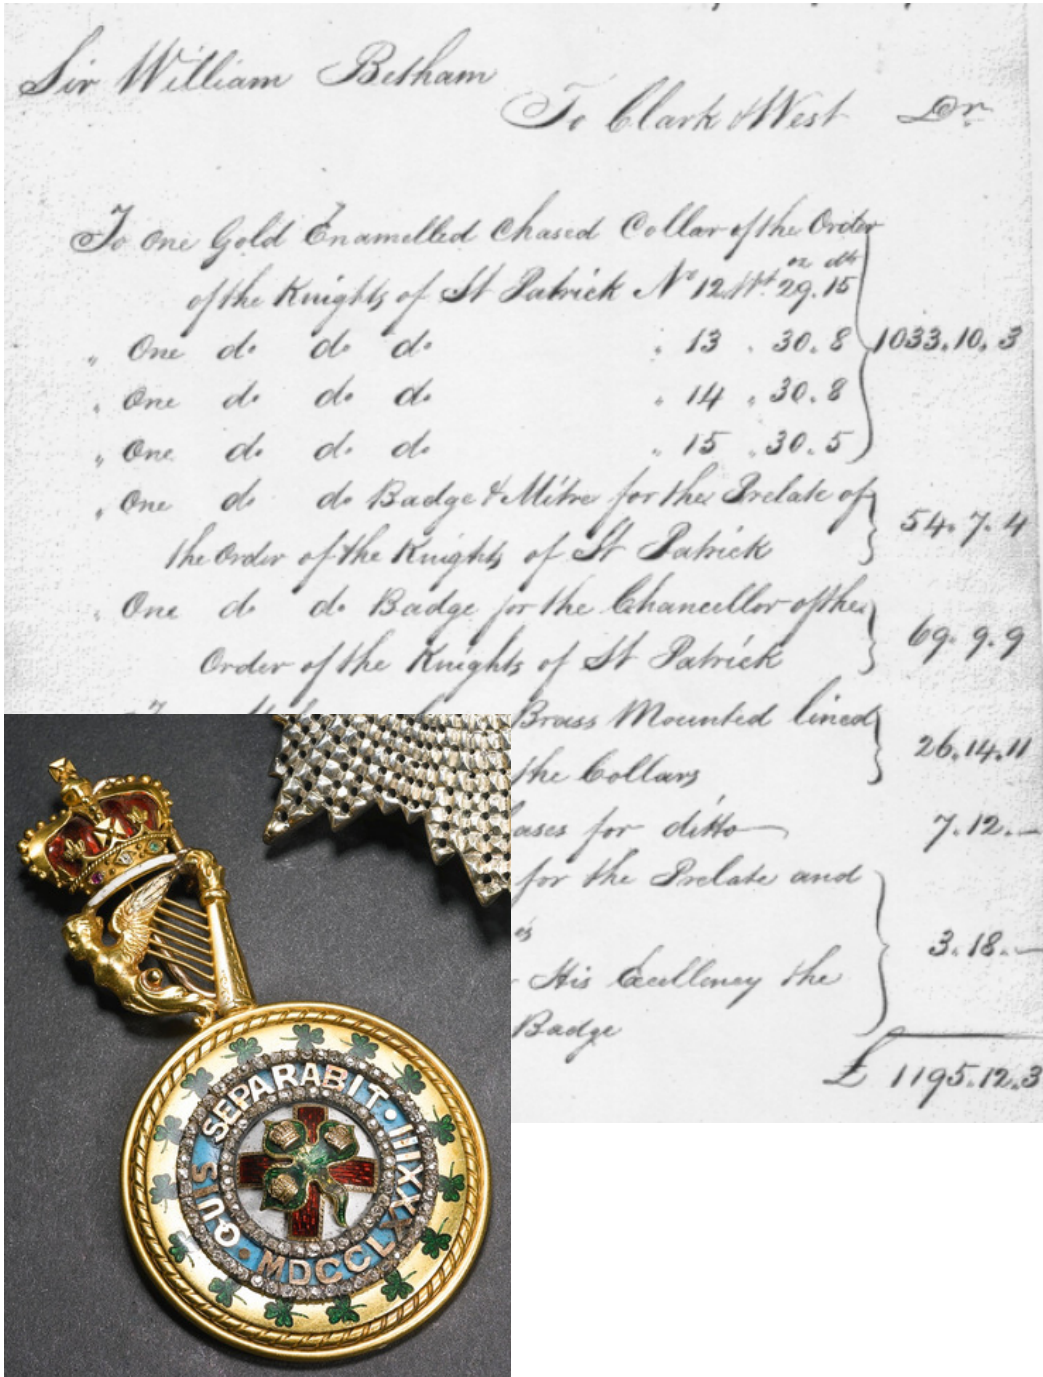 Sir William Betham
To Clark & West Dr.
To one Gold Enamelled Chased Collar of the Order
oz dts
of the Knights of St Patrick No 12 Wt. 29.15
" One do. do. do. " 13 " 30.8 1033.10.3
" One do. do. do. " 14 " 30.8
" One do. do. do. " 15 " 30.5
" One do. do. Badge & Mitre for the Prelate of
the Order of the Knights of St Patrick 54.7.4
" One do. do. Badge for the Chancellor of the
Order of the Knights of St Patrick 69.9.9
Brass Mounted lined
the Collars 26.14.11
ases for ditto 7.12.—
for the Prelate and
es 3.18.—
His Excellency the
Badge
£ 1195.12.3
QUIS SEPARABIT · MDCCLXXXIII ·